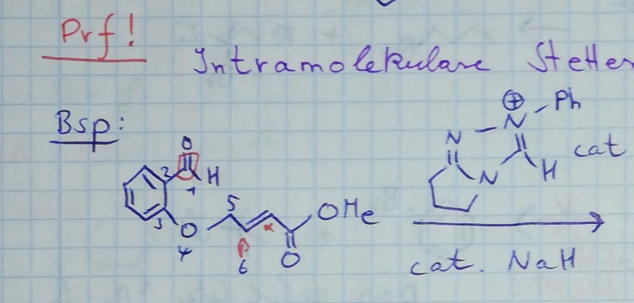 Prf!
Intramolekulare Stetter
Bsp:
⊕
N – N – Ph
N
H
cat
O
2
H
1
3
O
4
5
β
6
α
O
OMe
cat. NaH